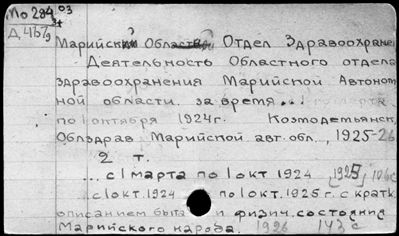 Мо 284 03
34
Д 415/9
Марийский Областной Отдел Здравоохране
Деятельность Областного отдела
здравоохранения Марийской Автоном
ной области. за время...
по 1 октября 1924г. Козмодемьянск,
Облздрав Марийской авт. обл., 1925-26
2 т.
... с 1 марта по 1 окт 1924 [1925],
... с 1 окт. 1924 по 1 окт. 1925 г. с кратк.
описанием быта и физич. состояния
Марийского народа. 1926 143 с